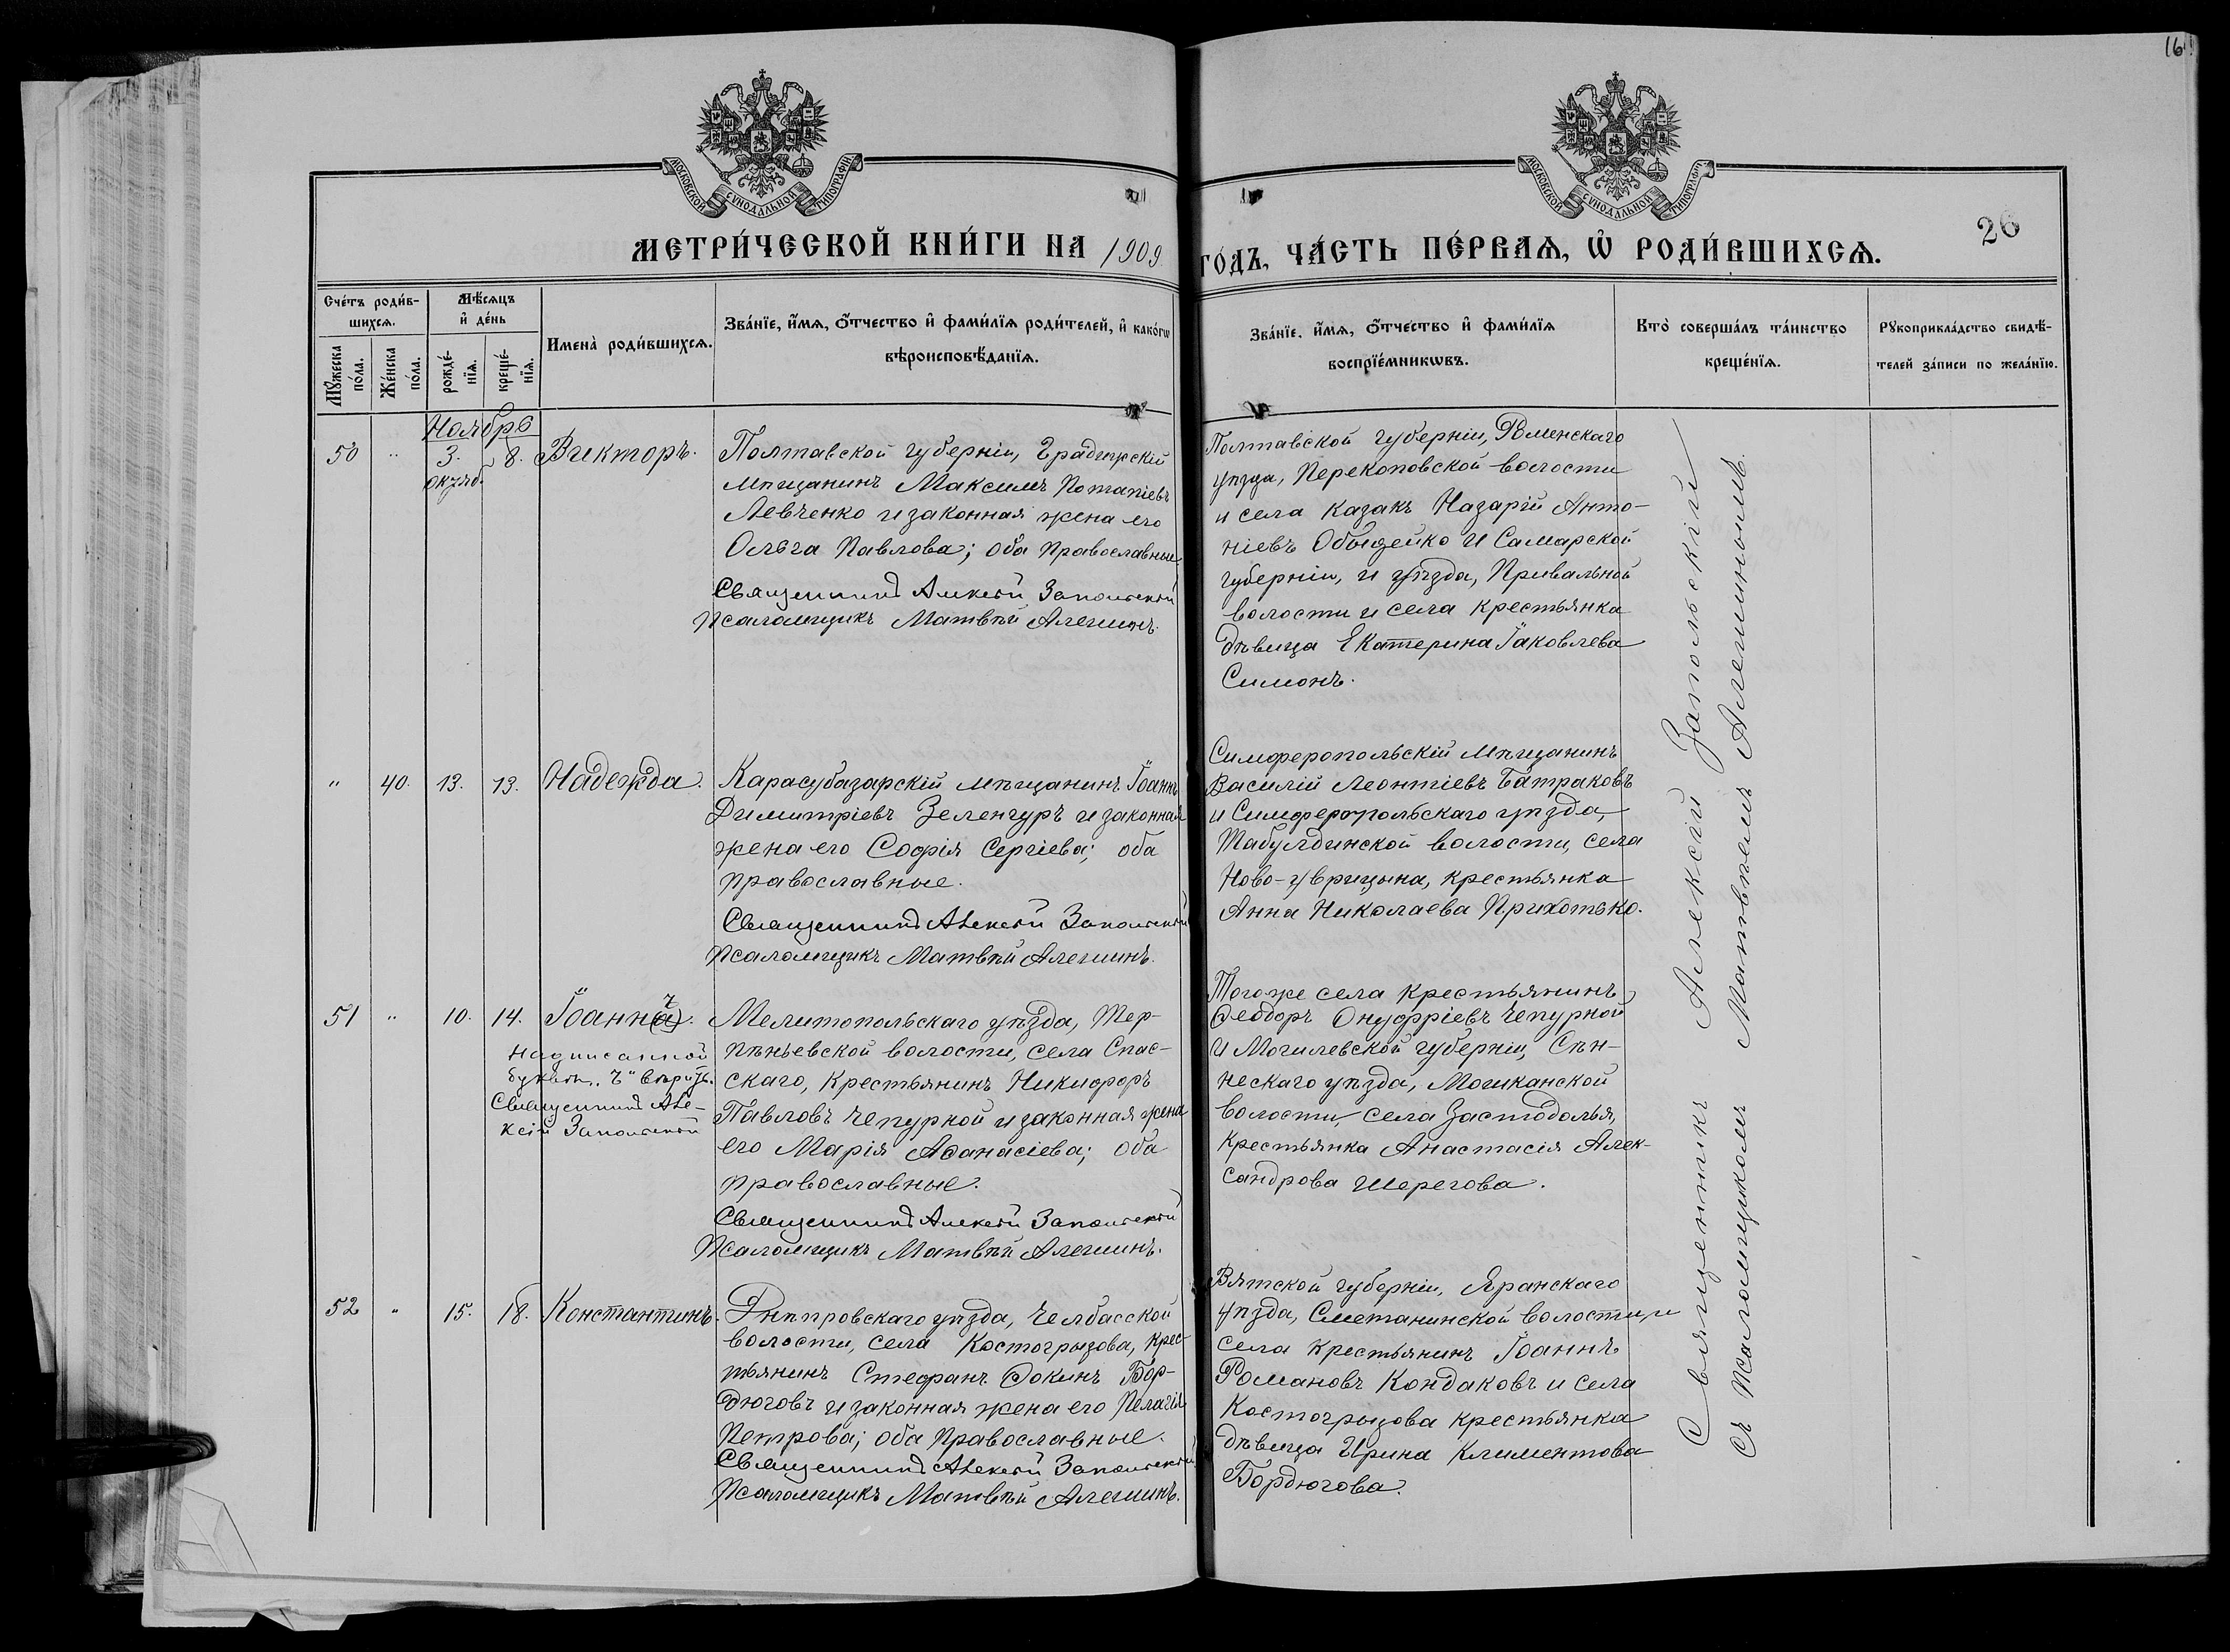 16
МОСКОВСКОЙ СѴНОДАЛЬНОЙ ТИПОГРАФІИ
МОСКОВСКОЙ СѴНОДАЛЬНОЙ ТИПОГРАФІИ
26
МЕТРИ́ЧЕСКОЙ КНИ́ГИ НА 1909 ГО́ДЪ, ЧА́СТЬ ПЕ́РВАѦ, Ѡ҆ РОДИ́ВШИХСѦ.
Сче́тъ роди́в-
шихсѧ.
Мꙋ́жеска по́ла.
Же́нска по́ла.
Мѣ́сѧцъ
и҆ де́нь
рожде́-
нїѧ.
креще́-
нїѧ.
Имена̀ роди́вшихсѧ.
Зва́нїе, и҆́мѧ, ѻ҆́тчество и҆ фами́лїѧ роди́телей, и҆ како́гѡ
вѣроисповѣ́данїѧ.
Зва́нїе, и҆́мѧ, ѻ҆́тчество и҆ фами́лїѧ
воспрїе́мникѡвъ.
Кто̀ соверша́лъ та́инство
креще́нїѧ.
Рꙋкоприкла́дство свидѣ́-
телей за́писи по жела́нїю.
Ноябрь
50 " 3. 8. Викторъ.
октяб.
Полтавской губерніи, Градижскій
мѣщанинъ Максимъ Потапіевъ
Левченко и законная жена его
Ольга Павлова; оба православные
Священникъ Алексій Запольскій
Псаломщикъ Матвѣй Алешинъ.
Полтавской губерніи, Роменскаго
уѣзда, Перекоповской волости
и села казакъ Назарій Анто-
ніевъ Обыдейко и Самарской
губерніи, и уѣзда, Привальной
волости и села крестьянка
дѣвица Екатерина Іаковлева
Симонъ.
" 40. 13. 13. Надежда.
Карасубазарскій мѣщанинъ Іоаннъ
Димитріевъ Зеленчуръ и законная
жена его Софія Сергіева; оба
православные.
Священникъ Алексій Запольскій
Псаломщикъ Матвѣй Алешинъ.
Симферопольскій мѣщанинъ
Василій Леонтіевъ Батраковъ
и Симферопольскаго уѣзда,
Табулдинской волости, села
Ново-, крестьянка
Анна Николаева Приходько.
51 " 10. 14. Іоанн(а)ъ.
Надписанной
букв „ъ" вѣрить.
Священникъ Але-
ксій Запольскій
Мелитопольскаго уѣзда, Тер-
пѣньевской волости, села Спас-
скаго, крестьянинъ Никифоръ
Павловъ Чепурной и законная жена
его Марія Аѳанасіева; оба
православные.
Священникъ Алексій Запольскій
Псаломщикъ Матвѣй Алешинъ.
Того же села крестьянинъ
Ѳеодоръ Онуфріевъ Чепурной
и Могилевской губерніи, Сѣн-
нескаго уѣзда, Мошканской
волости, села Застодолья,
крестьянка Анастасія Алек-
сандрова Шерегова.
52 " 15. 18. Константинъ.
Днѣпровскаго уѣзда, Челбасской
волости, села Костогрызова, крес-
тьянинъ Стефанъ Ѳокинъ Бор-
дюговъ и законная жена его Пелагія
Петрова; оба православные.
Священникъ Алексій Запольскій
Псаломщикъ Матвѣй Алешинъ.
Вятской губерніи, Яранскаго
уѣзда, Сметанинской волости, и
села крестьянинъ Іоаннъ
Романовъ Кондаковъ и села
Костогрызова крестьянка
дѣвица Ирина Климентова
Бордюгова.
Священникъ Алексій Запольскій
съ псаломщикомъ Матвѣемъ Алешинымъ.